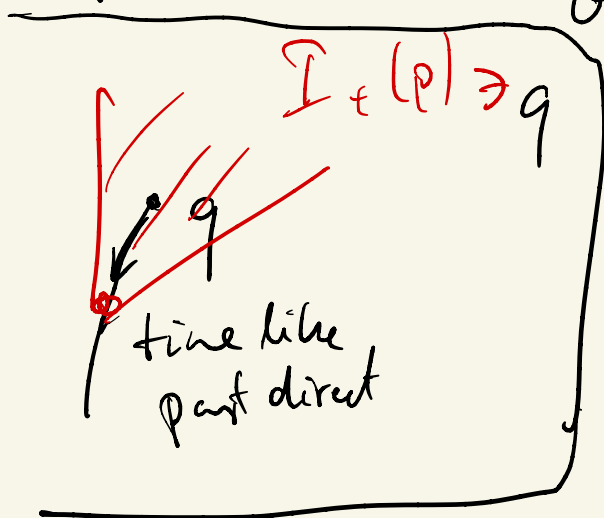 I₊(p) ∋ q
q
time like
past direct